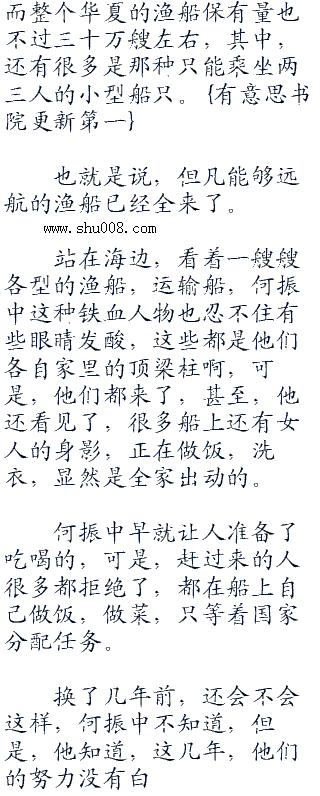 而整个华夏的渔船保有量也
不过三十万艘左右，其中，
还有很多是那种只能乘坐两
三人的小型船只。{有意思书
院更新第一}
也就是说，但凡能够远
航的渔船已经全来了。
www.shu008.com
站在海边，看着一艘艘
各型的渔船，运输船，何振
中这种铁血人物也忍不住有
些眼睛发酸，这些都是他们
各自家里的顶梁柱啊，可
是，他们都来了，甚至，他
还看见了，很多船上还有女
人的身影，正在做饭，洗
衣，显然是全家出动的。
何振中早就让人准备了
吃喝的，可是，赶过来的人
很多都拒绝了，都在船上自
己做饭，做菜，只等着国家
分配任务。
换了几年前，还会不会
这样，何振中不知道，但
是，他知道，这几年，他们
的努力没有白